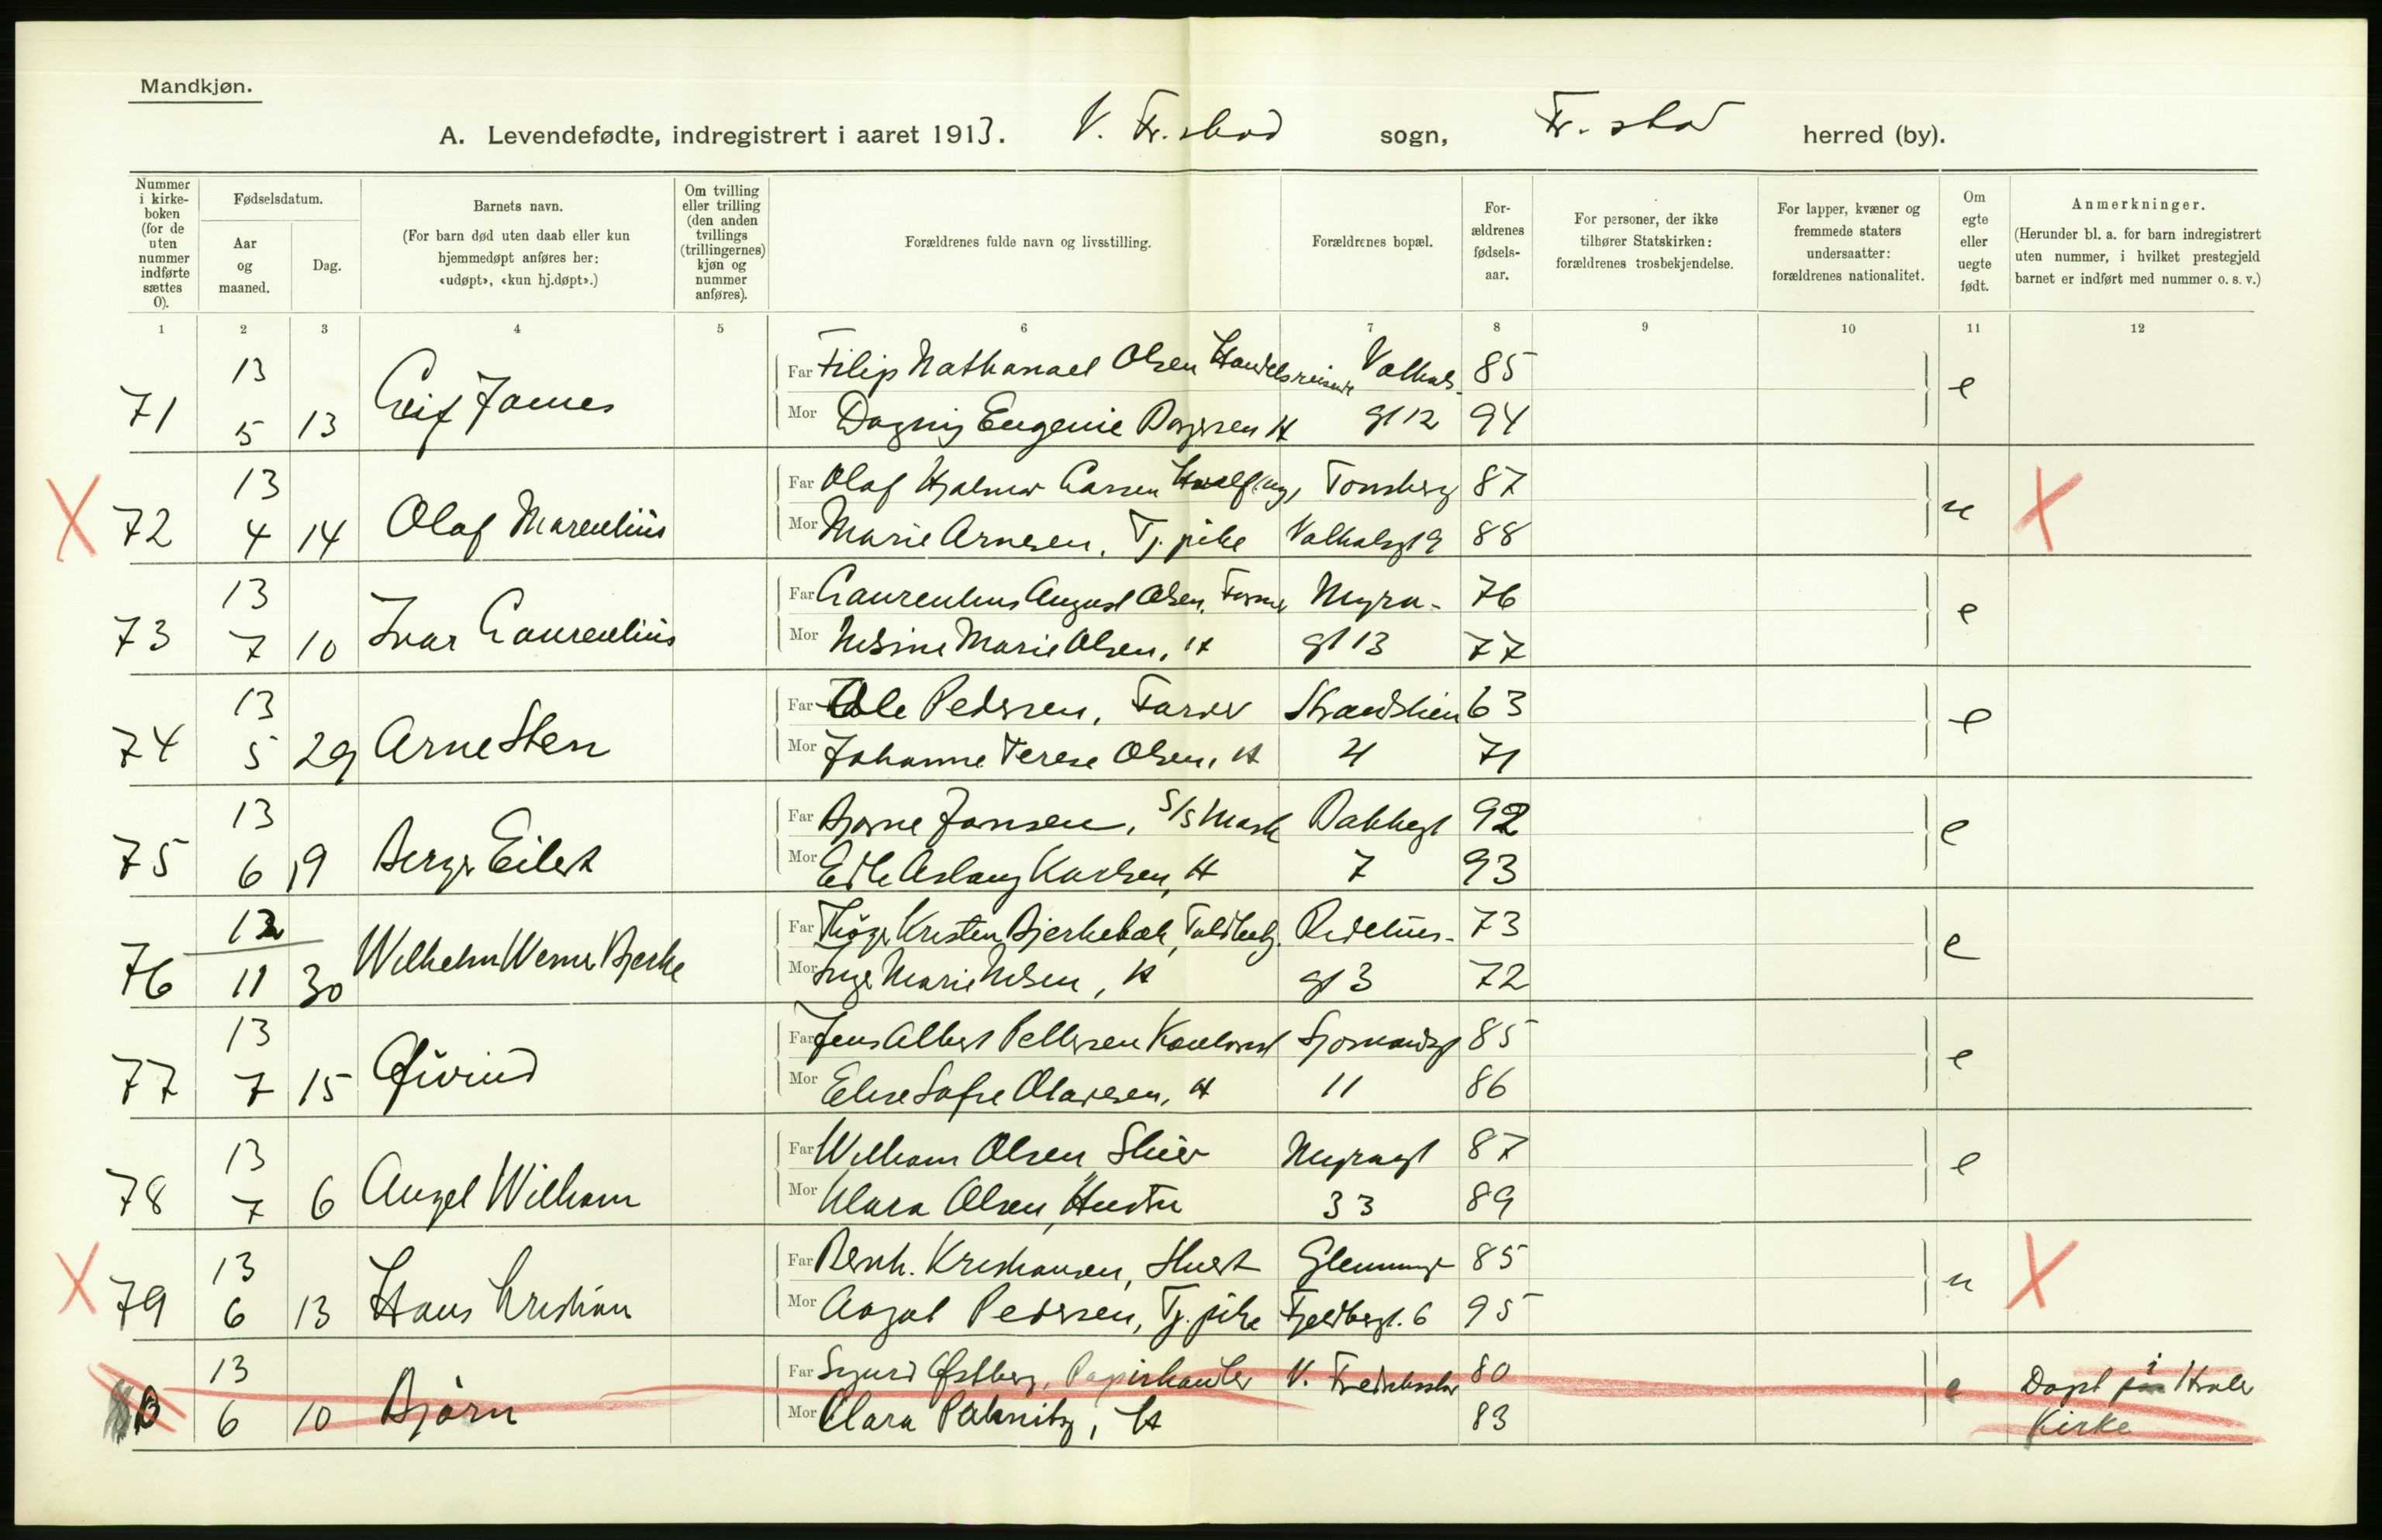 Mandkjøn.
A. Levendefødte, indregistrert i aaret 1913. V. Fr.stad sogn, Fr.stad herred (by).
Nummer i kirkeboken (for de uten nummer indførte sættes 0).
Fødselsdatum.
Aar og maaned.
Dag.
Barnets navn.
(For barn død uten daab eller kun hjemmedøpt anføres her: «udøpt», «kun hj.døpt».)
Om tvilling eller trilling (den anden tvillings (trillingernes) kjøn og nummer anføres).
Forældrenes fulde navn og livsstilling.
Forældrenes bopæl.
Forældrenes fødselsaar.
For personer, der ikke tilhører Statskirken: forældrenes trosbekjendelse.
For lapper, kvæner og fremmede staters undersaatter: forældrenes nationalitet.
Om egte eller uegte født.
Anmerkninger.
(Herunder bl. a. for barn indregistrert uten nummer, i hvilket prestegjeld barnet er indført med nummer o. s. v.)
1 2 3 4 5 6 7 8 9 10 11 12
13 Far Filip Nathanael Olsen Handelsreisende Valhals- 85
71 5 13 Leif James e
Mor Dagny Eugenie H gt 12 94
13 Far Olaf Hjalmar Larsen Tonsberg 87
X 72 4 14 Olaf Marentius u X
Mor Marie Arnesen, Tj. pike Valhalsgt 9 88
13 Far Laurentius August Olsen, Former Myra- 76
73 7 10 Ivar Laurentius e
Mor Nilsine Marie Olsen, H gt 13 77
13 Far Ole Pedersen, Farver Strandstien 63
74 5 29 Arne Sten e
Mor Johanne Terese Olsen, H 4 71
13 Far Bjarne Jansen, S/S Mask Bakkegt 92
75 6 19 Birger Eilert e
Mor Edle Aslaug Karlsen, H 7 93
12 Far Thøger Kristen Bjerkebæk, 73
76 11 30 Wilhelm Werner Bjerke e
Mor Inger Marie Nilsen, H gt 3 72
13 Far Jens Albert Pettersen Kontorist Sjomandsgt 85
77 7 15 Øivind e
Mor Elise Sofie Olavesen, H 11 86
13 Far William Olsen Sliper Myragt 87
78 7 6 Angel William e
Mor Klara Olsen, Hustru 33 89
13 Far Bernh. Kristiansen, Glemminge 85
X 79 6 13 Hans Kristian u X
Mor Aagot Pedersen, Tj. pike Fjeldbergt. 6 95
13 Far Sigurd Østberg, Papirhandler V. Fredrikstad 80
6 10 Bjørn e Døpt i Hvaler Kirke
Mor Clara, H 83